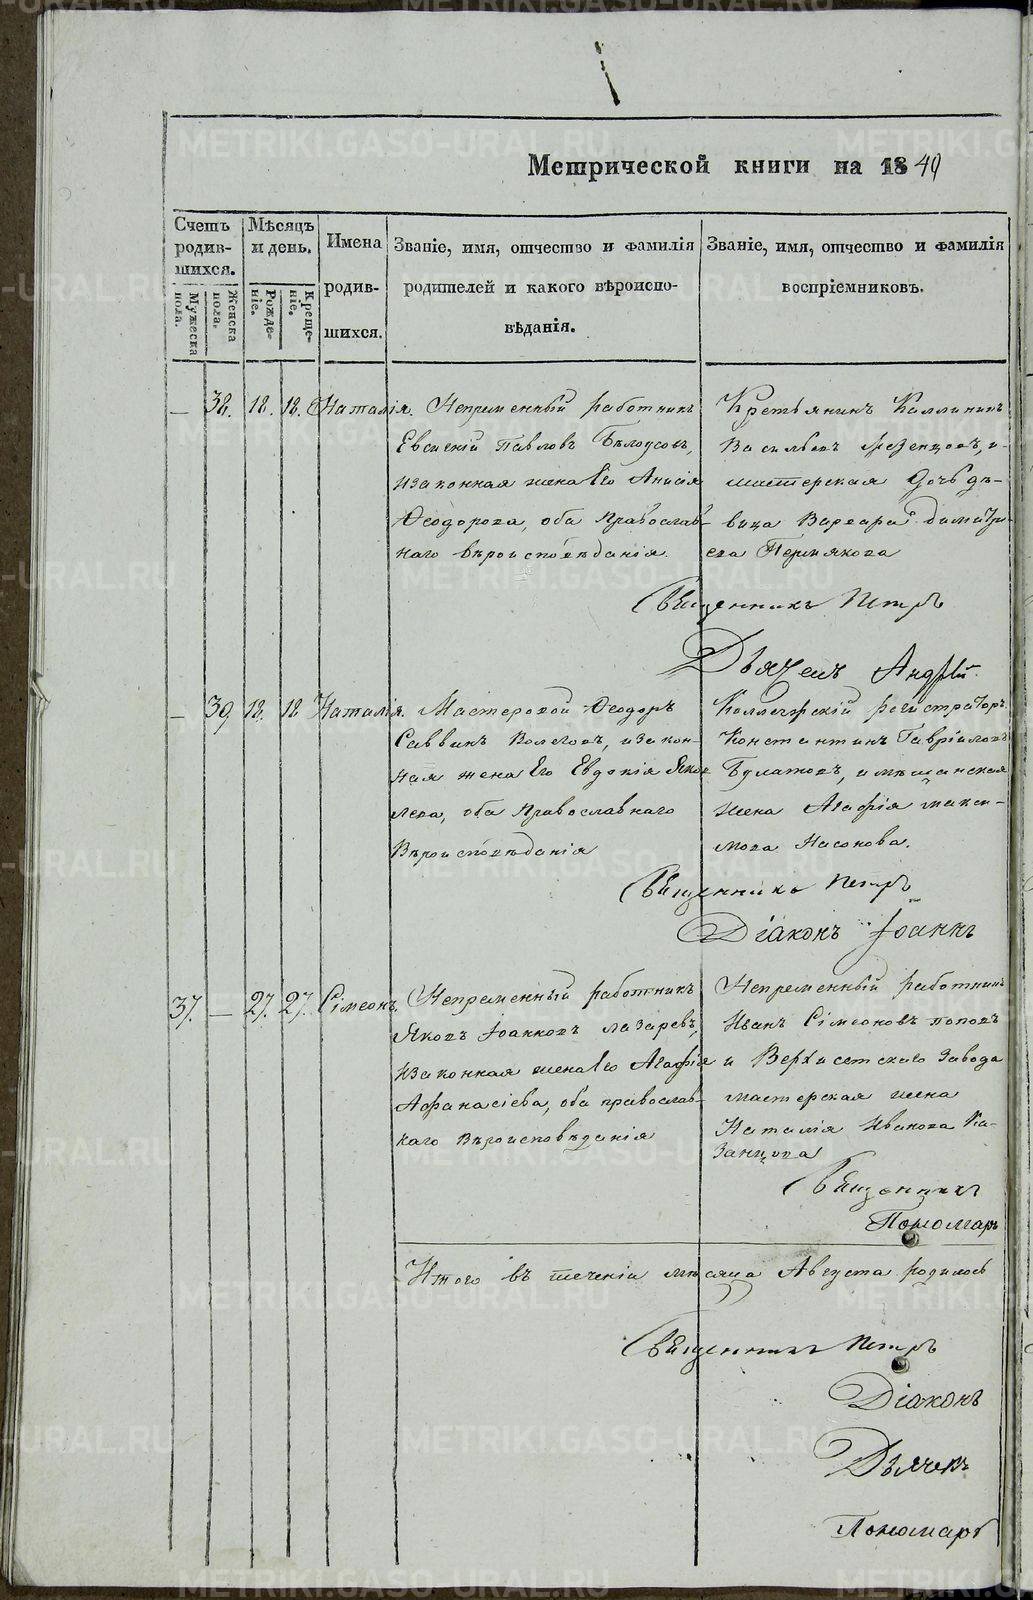 Метрической книги на 1849
Счетъ родившихся.
Мужеска пола.
Женска пола.
Мѣсяцъ и день.
Рожденіе.
Крещеніе.
Имена родившихся.
Званіе, имя, отчество и фамилія
родителей и какого вѣроиспо-
вѣданія.
Званіе, имя, отчество и фамилія
воспріемниковъ.
— 38. 18. 18. Наталія.
Непременный работникъ
Евсигній Павловъ Бѣлоусовъ,
и законная жена Его Анисія
Ѳеодорова, оба Православ-
наго вѣроисповѣданія.
Крестьянинъ Каллиникъ
Васильевъ
мастерская дочь дѣ-
вица Варвара Димитрі-
ева Пермякова
Священникъ Петръ
Дьячекъ Андрей
— 39 18. 18 Наталія.
Мастеровой Ѳеодоръ
Саввинъ Волеговъ, и закон-
ная жена Его Евдокія Яков
лева, оба Православнаго
Вѣроисповѣданія
Коллежскій регистраторъ
Константинъ Гавріиловъ
Булатовъ, и мѣщанская
жена Агафія макси-
мова Насонова.
Священникъ Петръ
Діаконъ Іоаннъ
37. — 27. 27. Сімеонъ.
Непременный работникъ
Яковъ Іоанновъ Лазаревъ,
и законная жена Его Агафія
Афанасіева, оба православ-
наго Вѣроисповѣданія
Непременный работникъ
Иванъ Сімеоновъ поповъ
и Верхисетскаго завода
мастерская жена
Наталія Иванова Ка-
занцова
Священникъ
Пономарь
Итого въ теченіи мѣсяца Августа родилось
Священникъ Петръ
Діаконъ
Дьячекъ
Пономарь
METRIKI.GASO-URAL.RU